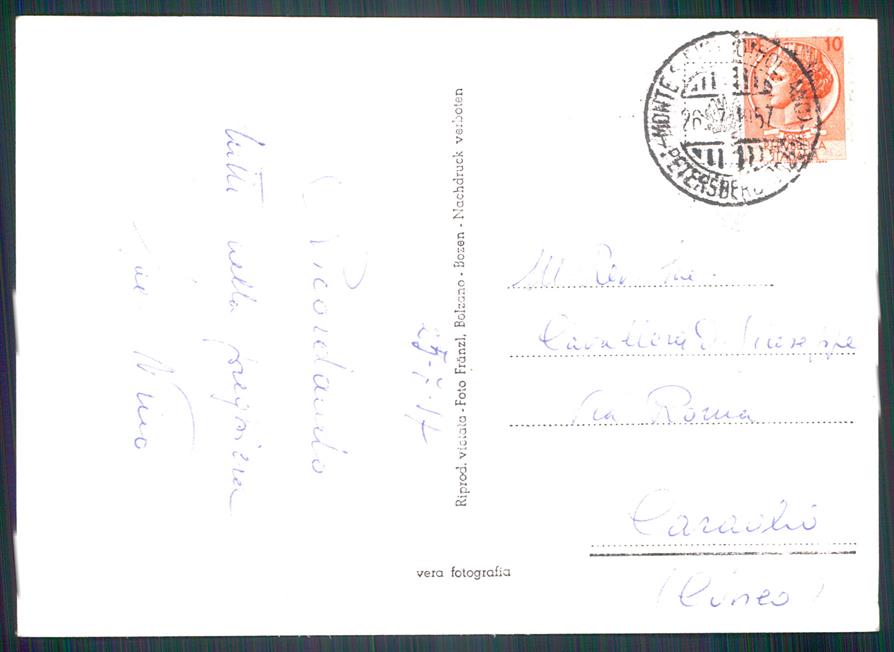 25-7-57
Ricordando
tutti nella preghiera
Nino
Riprod. vietata - Foto Fränzl, Bolzano - Bozen - Nachdruck verboten
vera fotografia
10
MONTE S.
PETERSBERG
26.7. 57
M. Rev.
Cavallera D. Giuseppe
Via Roma
Caraglio
(Cuneo)